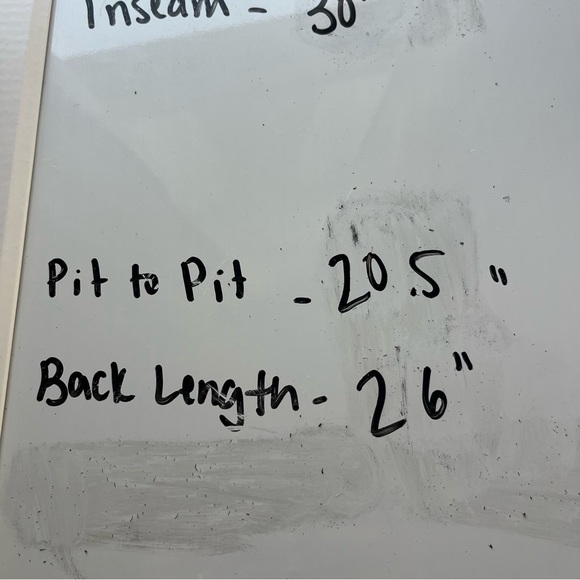 Inseam - 30"
Pit to Pit - 20.5 "
Back Length - 26"